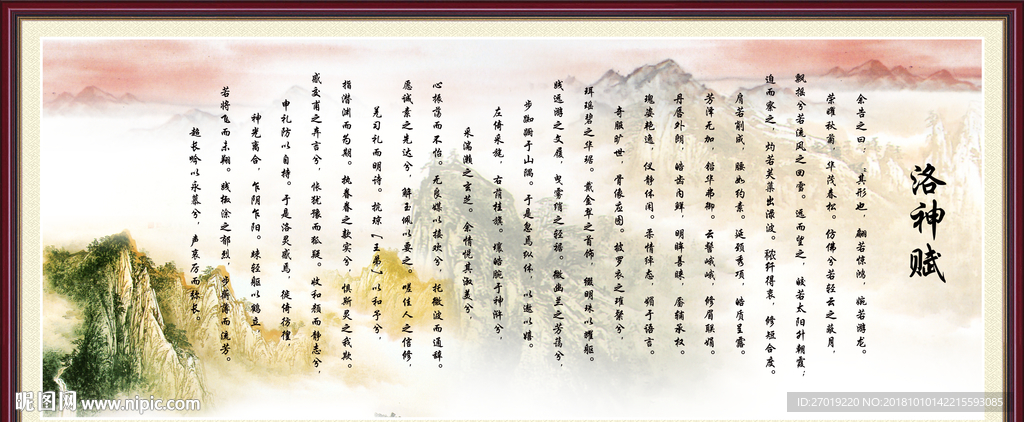 洛神赋
余告之曰，“其形也，翩若惊鸿，婉若游龙。
荣曜秋菊，华茂春松。仿佛兮若轻云之蔽月，
飘摇兮若流风之回雪。远而望之，皎若太阳升朝霞；
迫而察之，灼若芙蕖出渌波。秾纤得衷，修短合度。
肩若削成，腰如约素。延颈秀项，皓质呈露。
芳泽无加，铅华弗御。云髻峨峨，修眉联娟。
丹唇外朗，皓齿内鲜，明眸善睐，靥辅承权。
瑰姿艳逸，仪静体闲。柔情绰态，媚于语言。
奇服旷世，骨像应图。披罗衣之璀粲兮，
珥瑶碧之华琚。戴金翠之首饰，缀明珠以耀躯。
践远游之文履，曳雾绡之轻裾。微幽兰之芳蔼兮，
步踟蹰于山隅。于是忽焉纵体，以遨以嬉。
左倚采旄，右荫桂旗。壤皓腕于神浒兮，
采湍濑之玄芝。余情悦其淑美兮，
心振荡而不怡。无良媒以接欢兮，托微波而通辞。
愿诚素之先达兮，解玉佩以要之。嗟佳人之信修，
羌习礼而明诗。抗琼（王弟）以和予兮，
指潜渊而为期。执眷眷之款实兮，惧斯灵之我欺。
感交甫之弃言兮，怅犹豫而狐疑。收和颜而静志兮，
申礼防以自持。于是洛灵感焉，徙倚彷徨，
神光离合，乍阴乍阳。竦轻躯以鹤立，
若将飞而未翔。践椒涂之郁烈，步蘅薄而流芳。
超长吟以永慕兮，声哀厉而弥长。
昵图网 www.nipic.com
ID:27019220 NO:20181010142215593085